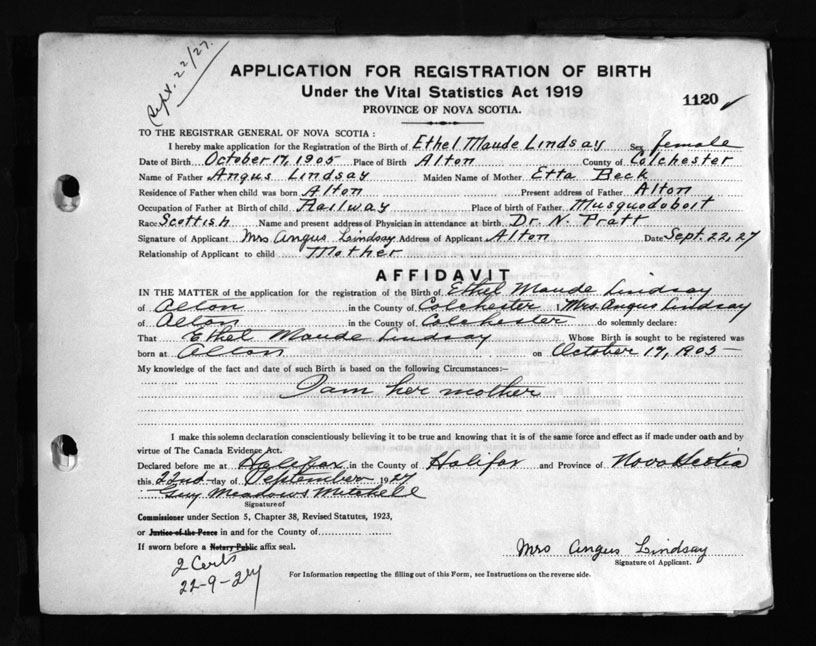 Sept. 22/27.
APPLICATION FOR REGISTRATION OF BIRTH
Under the Vital Statistics Act 1919
PROVINCE OF NOVA SCOTIA.
1120
TO THE REGISTRAR GENERAL OF NOVA SCOTIA :
I hereby make application for the Registration of the Birth of Ethel Maude Lindsay Sex female
Date of Birth October 17, 1905 Place of Birth Alton County of Colchester
Name of Father Angus Lindsay Maiden Name of Mother Etta Beck
Residence of Father when child was born Alton Present address of Father Alton
Occupation of Father at Birth of child Railway Place of birth of Father Musquodoboit
Race Scottish Name and present address of Physician in attendance at birth Dr. N. Pratt
Signature of Applicant Mrs Angus Lindsay Address of Applicant Alton Date Sept. 22, 27
Relationship of Applicant to child Mother
AFFIDAVIT
IN THE MATTER of the application for the registration of the Birth of Ethel Maude Lindsay
of Alton in the County of Colchester I Mrs. Angus Lindsay
of Alton in the County of Colchester do solemnly declare:
That Ethel Maude Lindsay Whose Birth is sought to be registered was
born at Alton on October 17, 1905
My knowledge of the fact and date of such Birth is based on the following Circumstances:—
I am her mother
I make this solemn declaration conscientiously believing it to be true and knowing that it is of the same force and effect as if made under oath and by
virtue of The Canada Evidence Act.
Declared before me at Halifax in the County of Halifax and Province of Nova Scotia
this 22nd day of September 1927
Guy Meadows Mitchell
Signature of
Commissioner under Section 5, Chapter 38, Revised Statutes, 1923,
or Justice of the Peace in and for the County of
If sworn before a Notary Public affix seal.
Mrs Angus Lindsay
Signature of Applicant.
2 Certs
22-9-27
For Information respecting the filling out of this Form, see Instructions on the reverse side.